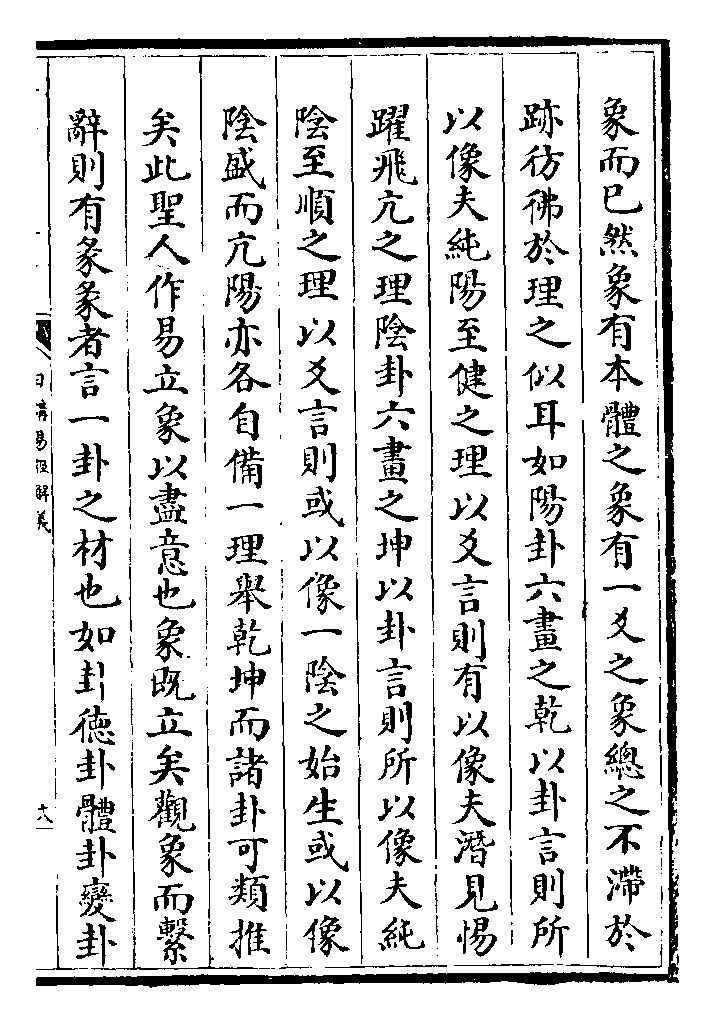 象而已然象有本體之象有一爻之象總之不滯於
跡彷彿於理之似耳如陽卦六畫之乾以卦言則所
以像夫純陽至健之理以爻言則有以像夫潛見惕
躍飛亢之理陰卦六畫之坤以卦言則所以像夫純
陰至順之理以爻言則或以像一陰之始生或以像
陰盛而亢陽亦各自備一理舉乾坤而諸卦可類推
矣此聖人作易立象以盡意也象既立矣觀象而繫
辭則有彖彖者言一卦之材也如卦德卦體卦變卦
日講易經解義